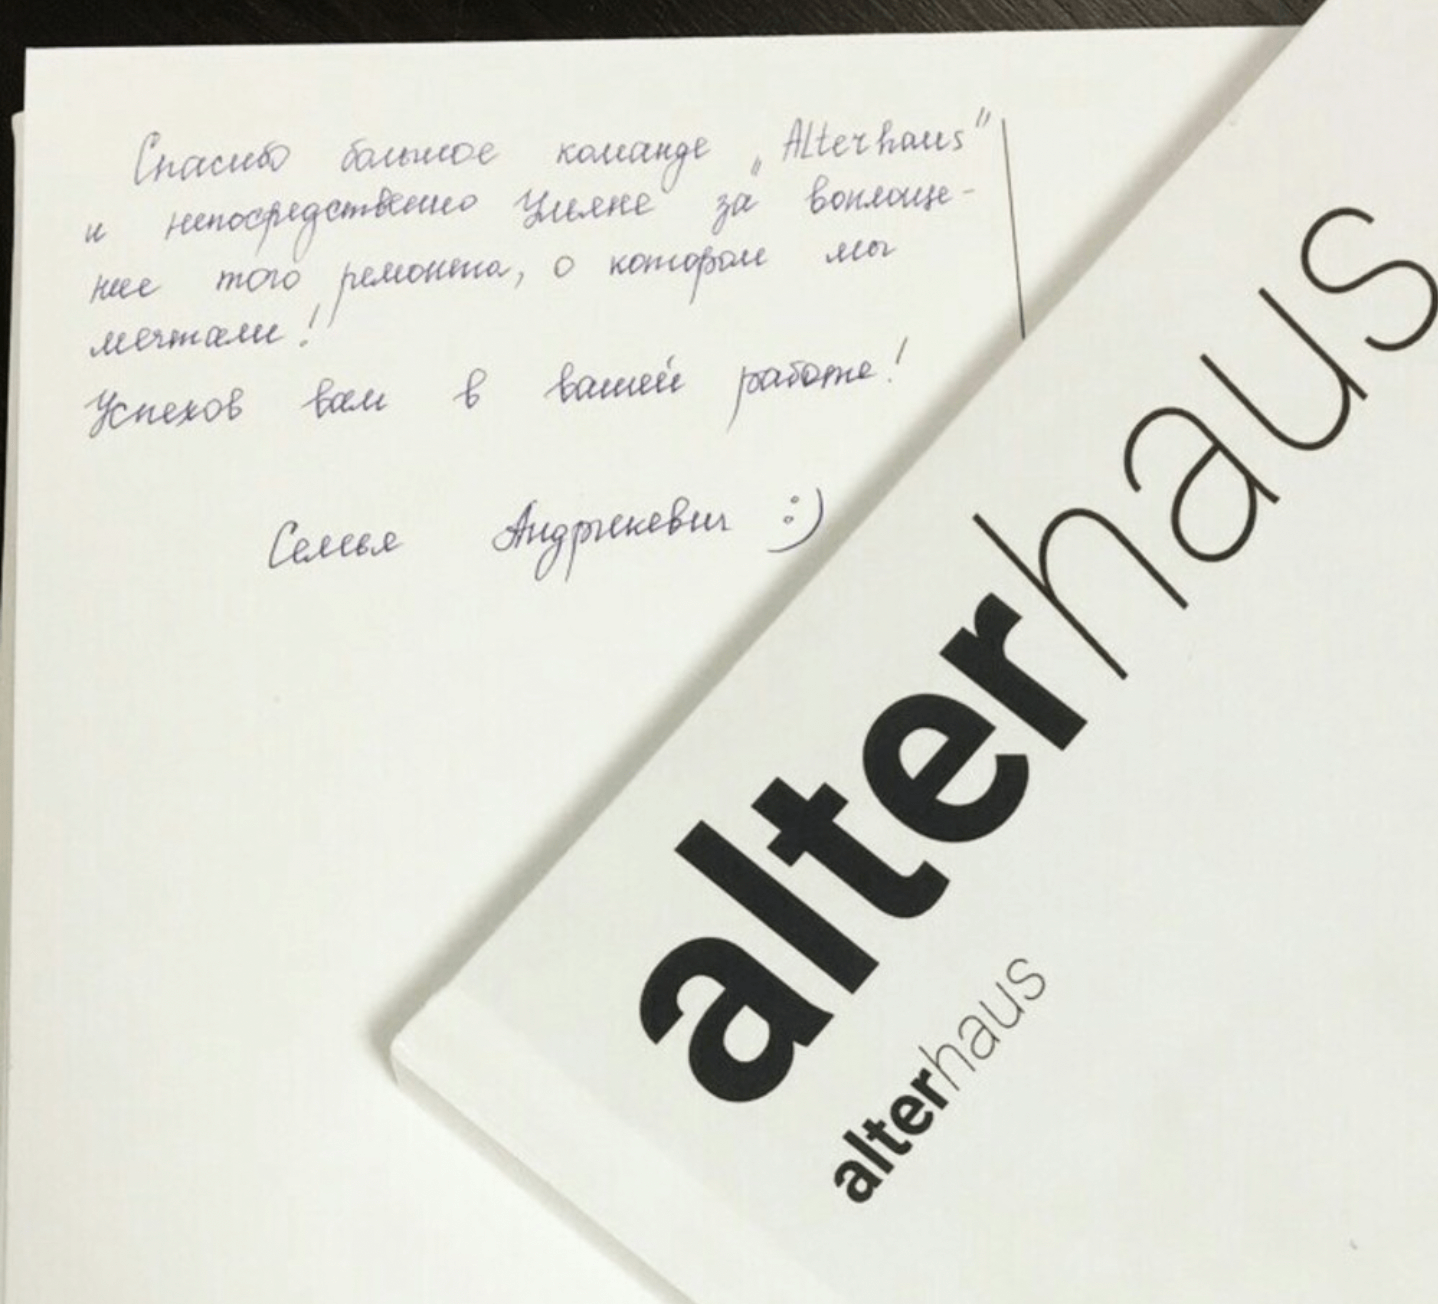 Спасибо большое команде „Alterhaus"
и непосредственно Ульяне за воплоще-
ние того ремонта, о котором мы
мечтали!
Успехов вам в вашей работе!
Семья :)
alterhaus
alterhaus